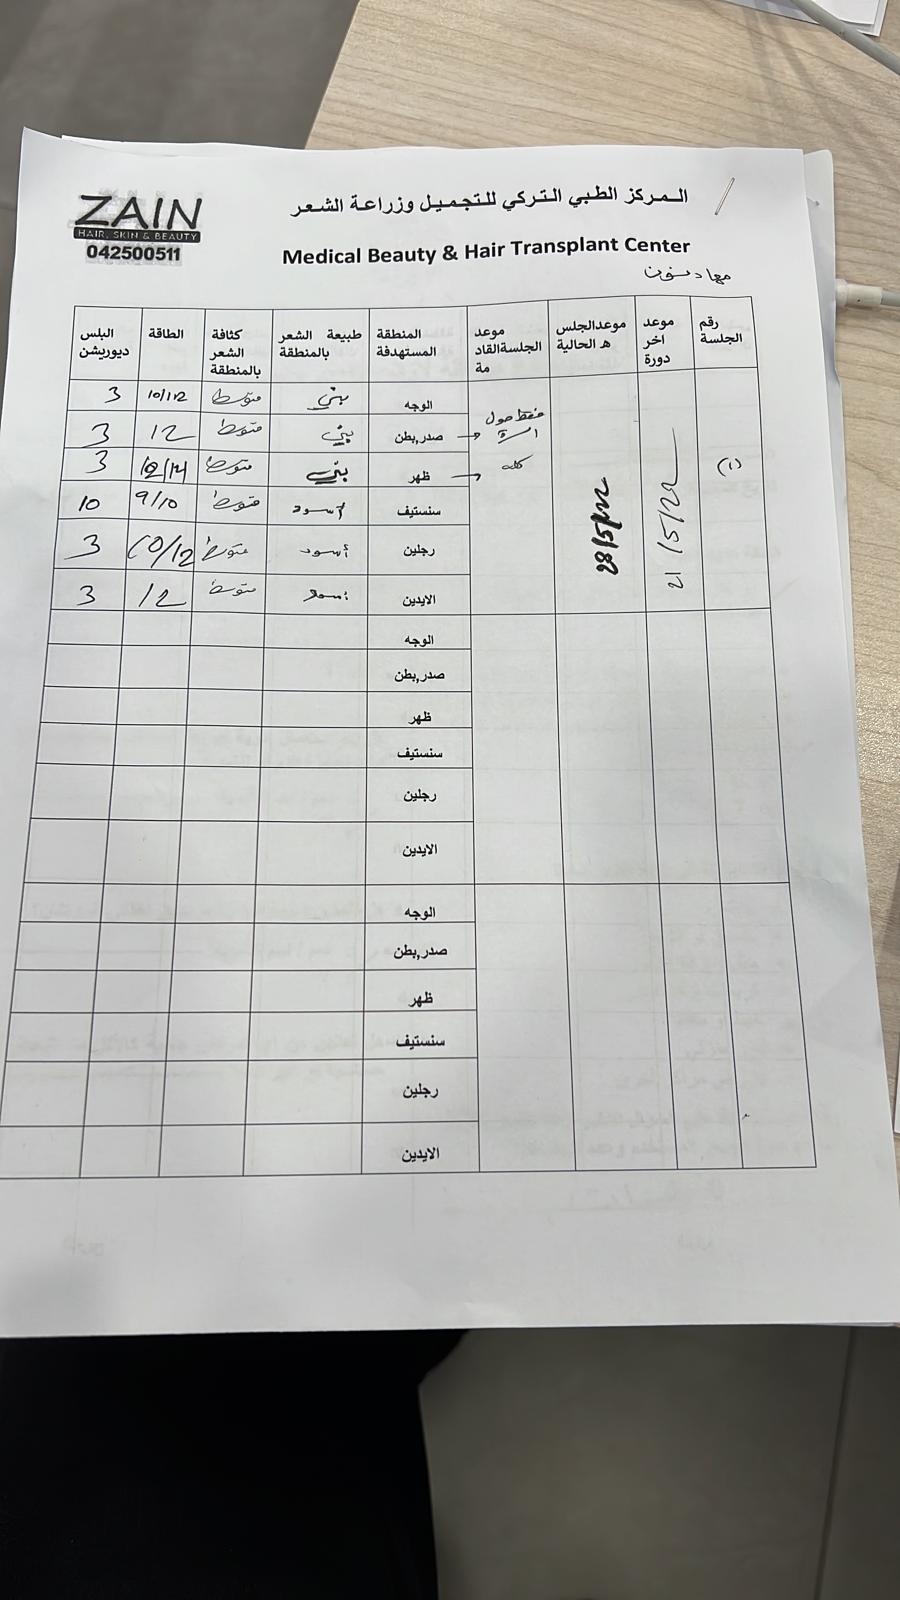 ZAIN
HAIR, SKIN & BEAUTY
042500511
المركز الطبي التركي للتجميل وزراعة الشعر
Medical Beauty & Hair Transplant Center
رقم الجلسة | موعد اخر دورة | موعدالجلس ه الحالية | موعد الجلسةالقاد مة | المنطقة المستهدفة | طبيعة الشعر بالمنطقة | كثافة الشعر بالمنطقة | الطاقة | البلس ديوريشن
(١) | 21/5/22 | فقط حول السرة | الوجه | بني | متوسط | 10/12 | 3
صدر,بطن | بني | متوسط | 12 | 3
كله | ظهر | بني | متوسط | 3
سنستيف | أسود | متوسط | 9/10 | 10
رجلين | أسود | متوسط | 10/12 | 3
الايدين | أسود | متوسط | 12 | 3
الوجه
صدر,بطن
ظهر
سنستيف
رجلين
الايدين
الوجه
صدر,بطن
ظهر
سنستيف
رجلين
الايدين